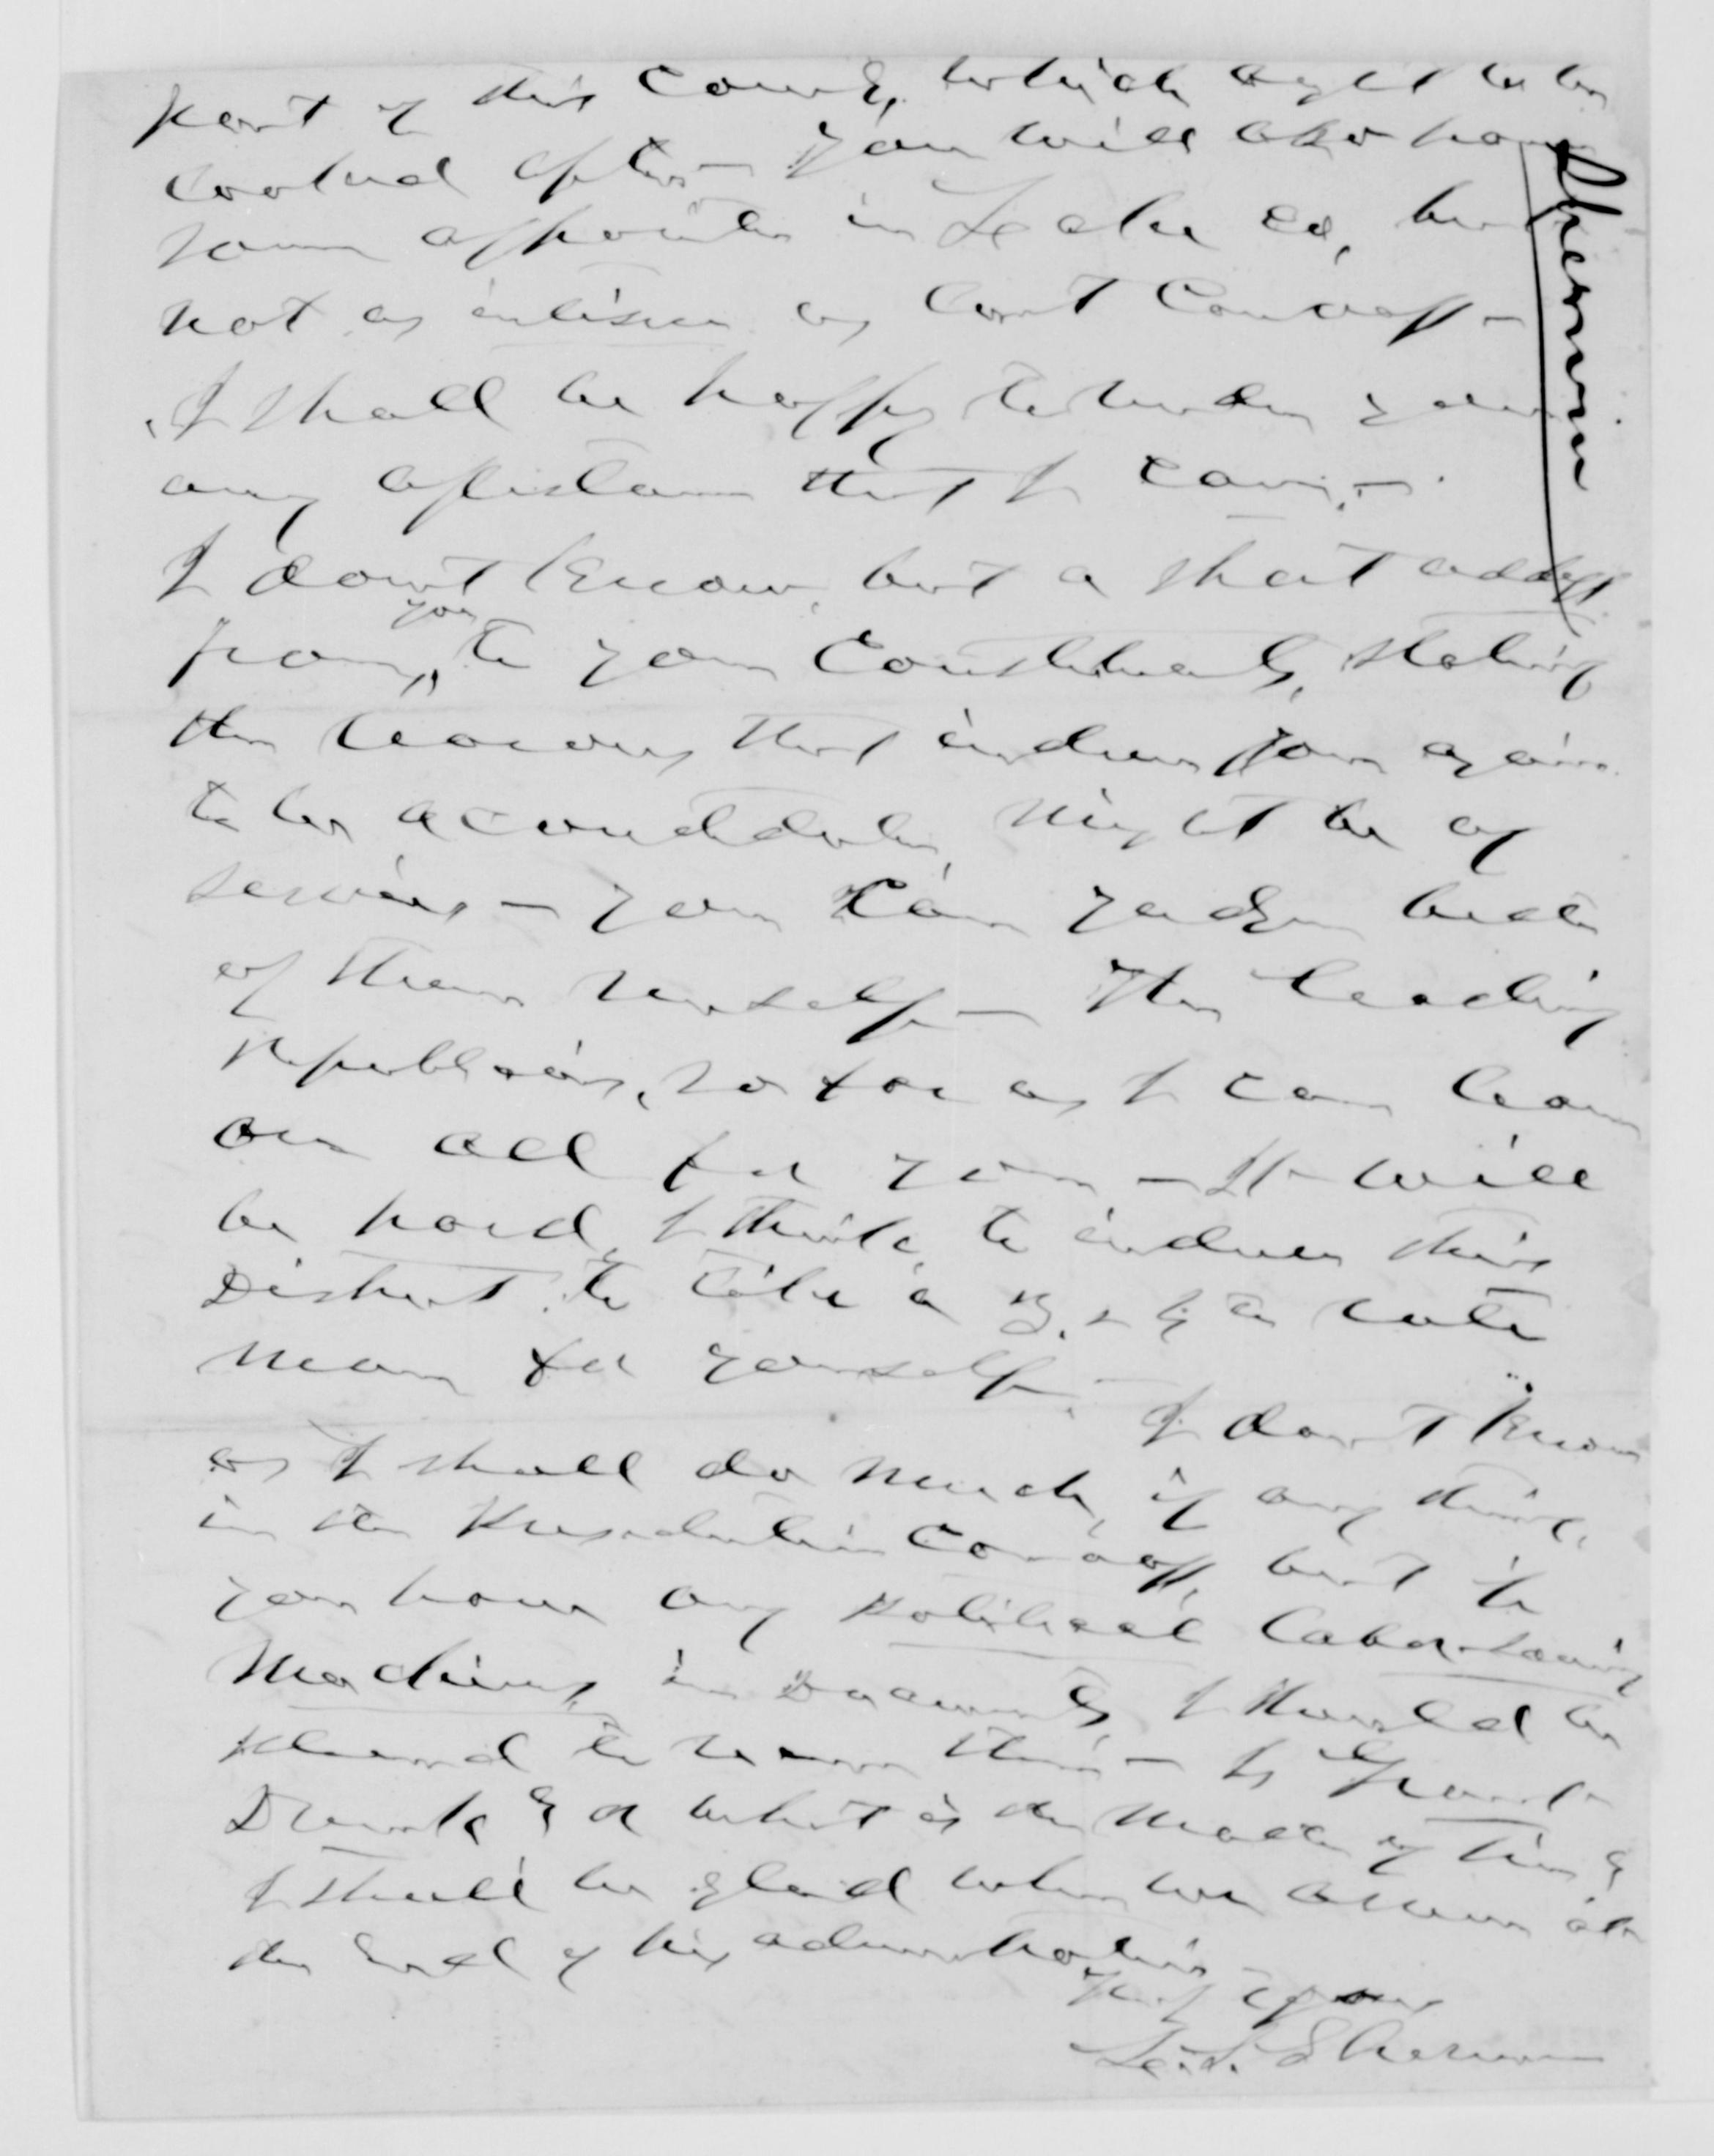 part of this County, which ought to be
looked after - You will also have
some opposition in Lake Co, but
not as intense as last Canvass -
I shall be happy to render you
any assistance that I can, -
I don't know, but a short address
from you to your Constituents, stating
the reasons that induce you again
to be a candidate, might be of
service - you can judge better
of them yourself - The leading
Republicans, so far as I can learn
are all for you - It will
be hard, I think, to induce this
District to take a
man for yourself. -
I don't know
as I shall do much, if any thing,
in the Presidential Canvass, but if
you have any political labor-saving
machines, in Documents, I should be
pleased to receive them - Is Grant
Drunk? or what is the matter of him?
I shall be glad when we arrive at
the End of his administration
Truly Yours
L. S. Sherman
Sherwin